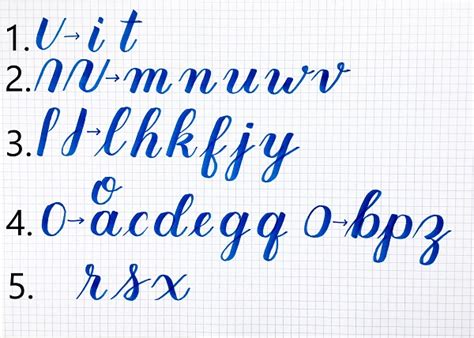 1. U→i t
2. NU→m n u w v
3. l J→l h k f j y
4. O→a c d e g q O→b p z
5. r s x